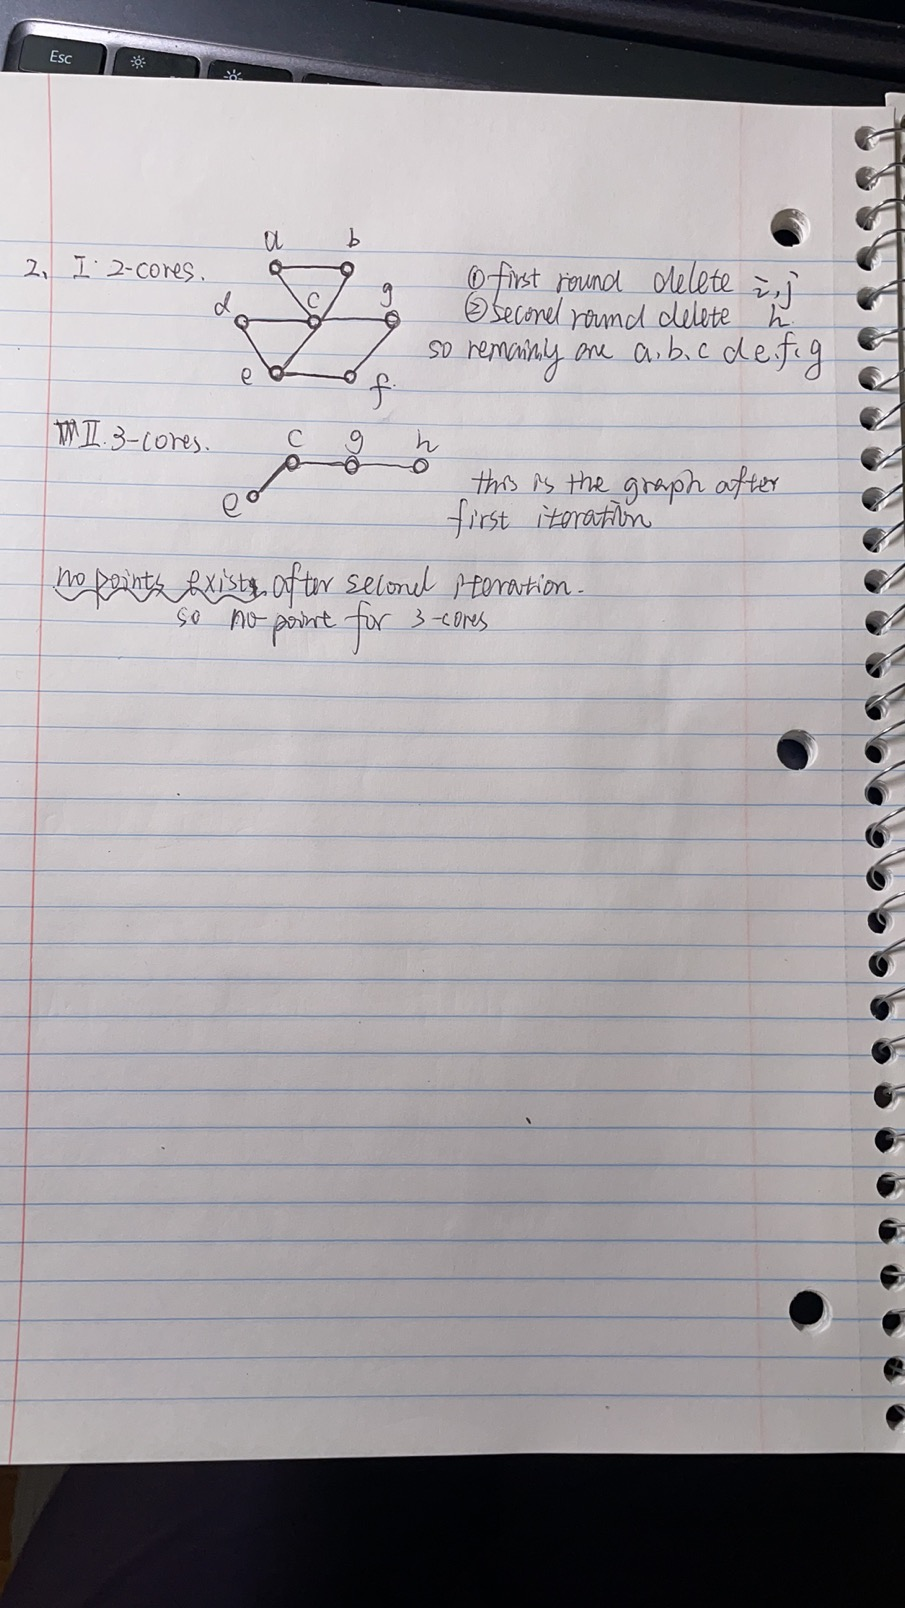 Esc
a b
2、 I. 2-cores.
① first round delete i,j
d c g
② second round delete h.
so remainly are a.b.c d e.f.g
e f.
II. 3-cores.
c g h
e
this is the graph after
first itoration
no points exists after second itoration.
so no point for 3-cores